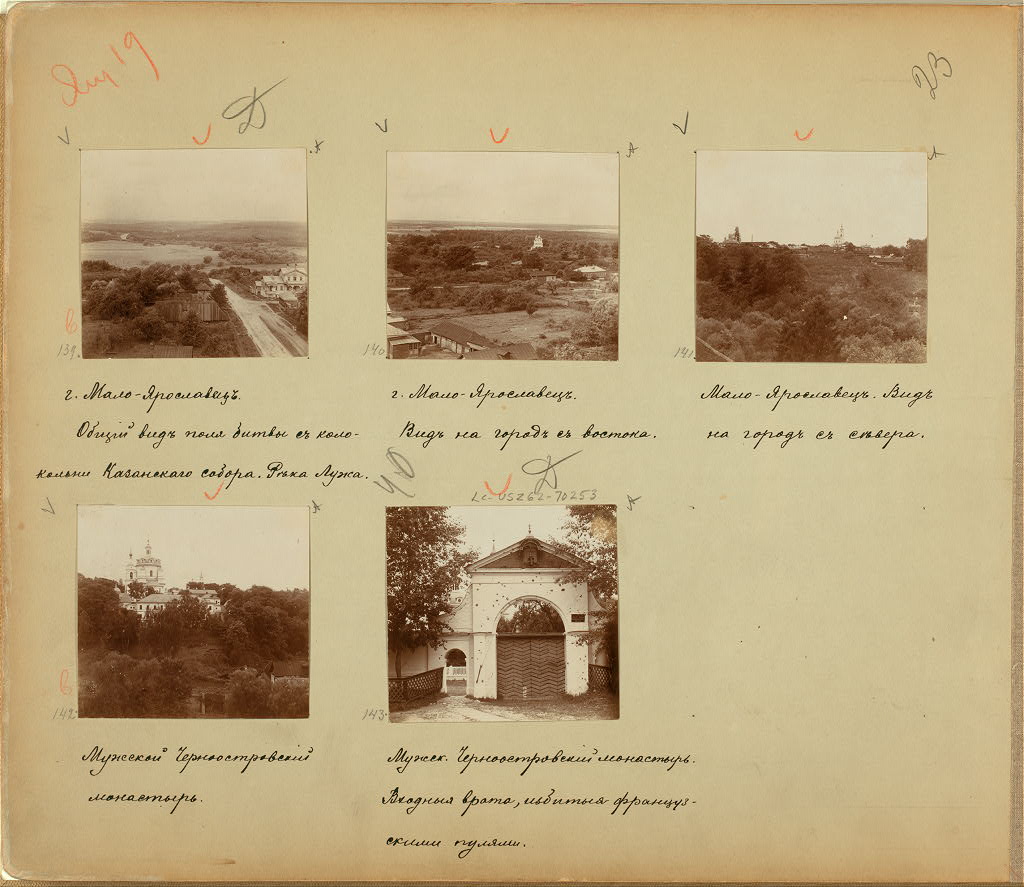 23
Д
139.
140
141
г. Мало-Ярославецъ.
Общій видъ поля битвы съ коло-
кольни Казанскаго собора. Рѣка Лужа.
г. Мало-Ярославецъ.
Видъ на городъ съ востока.
Мало-Ярославецъ. Видъ
на городъ съ сѣвера.
40
Д
LC-USZ62-70253
142
143
Мужской Черноостровскій
монастырь.
Мужск. Черноостровскій монастырь.
Входныя врата, избитыя француз-
скими пулями.